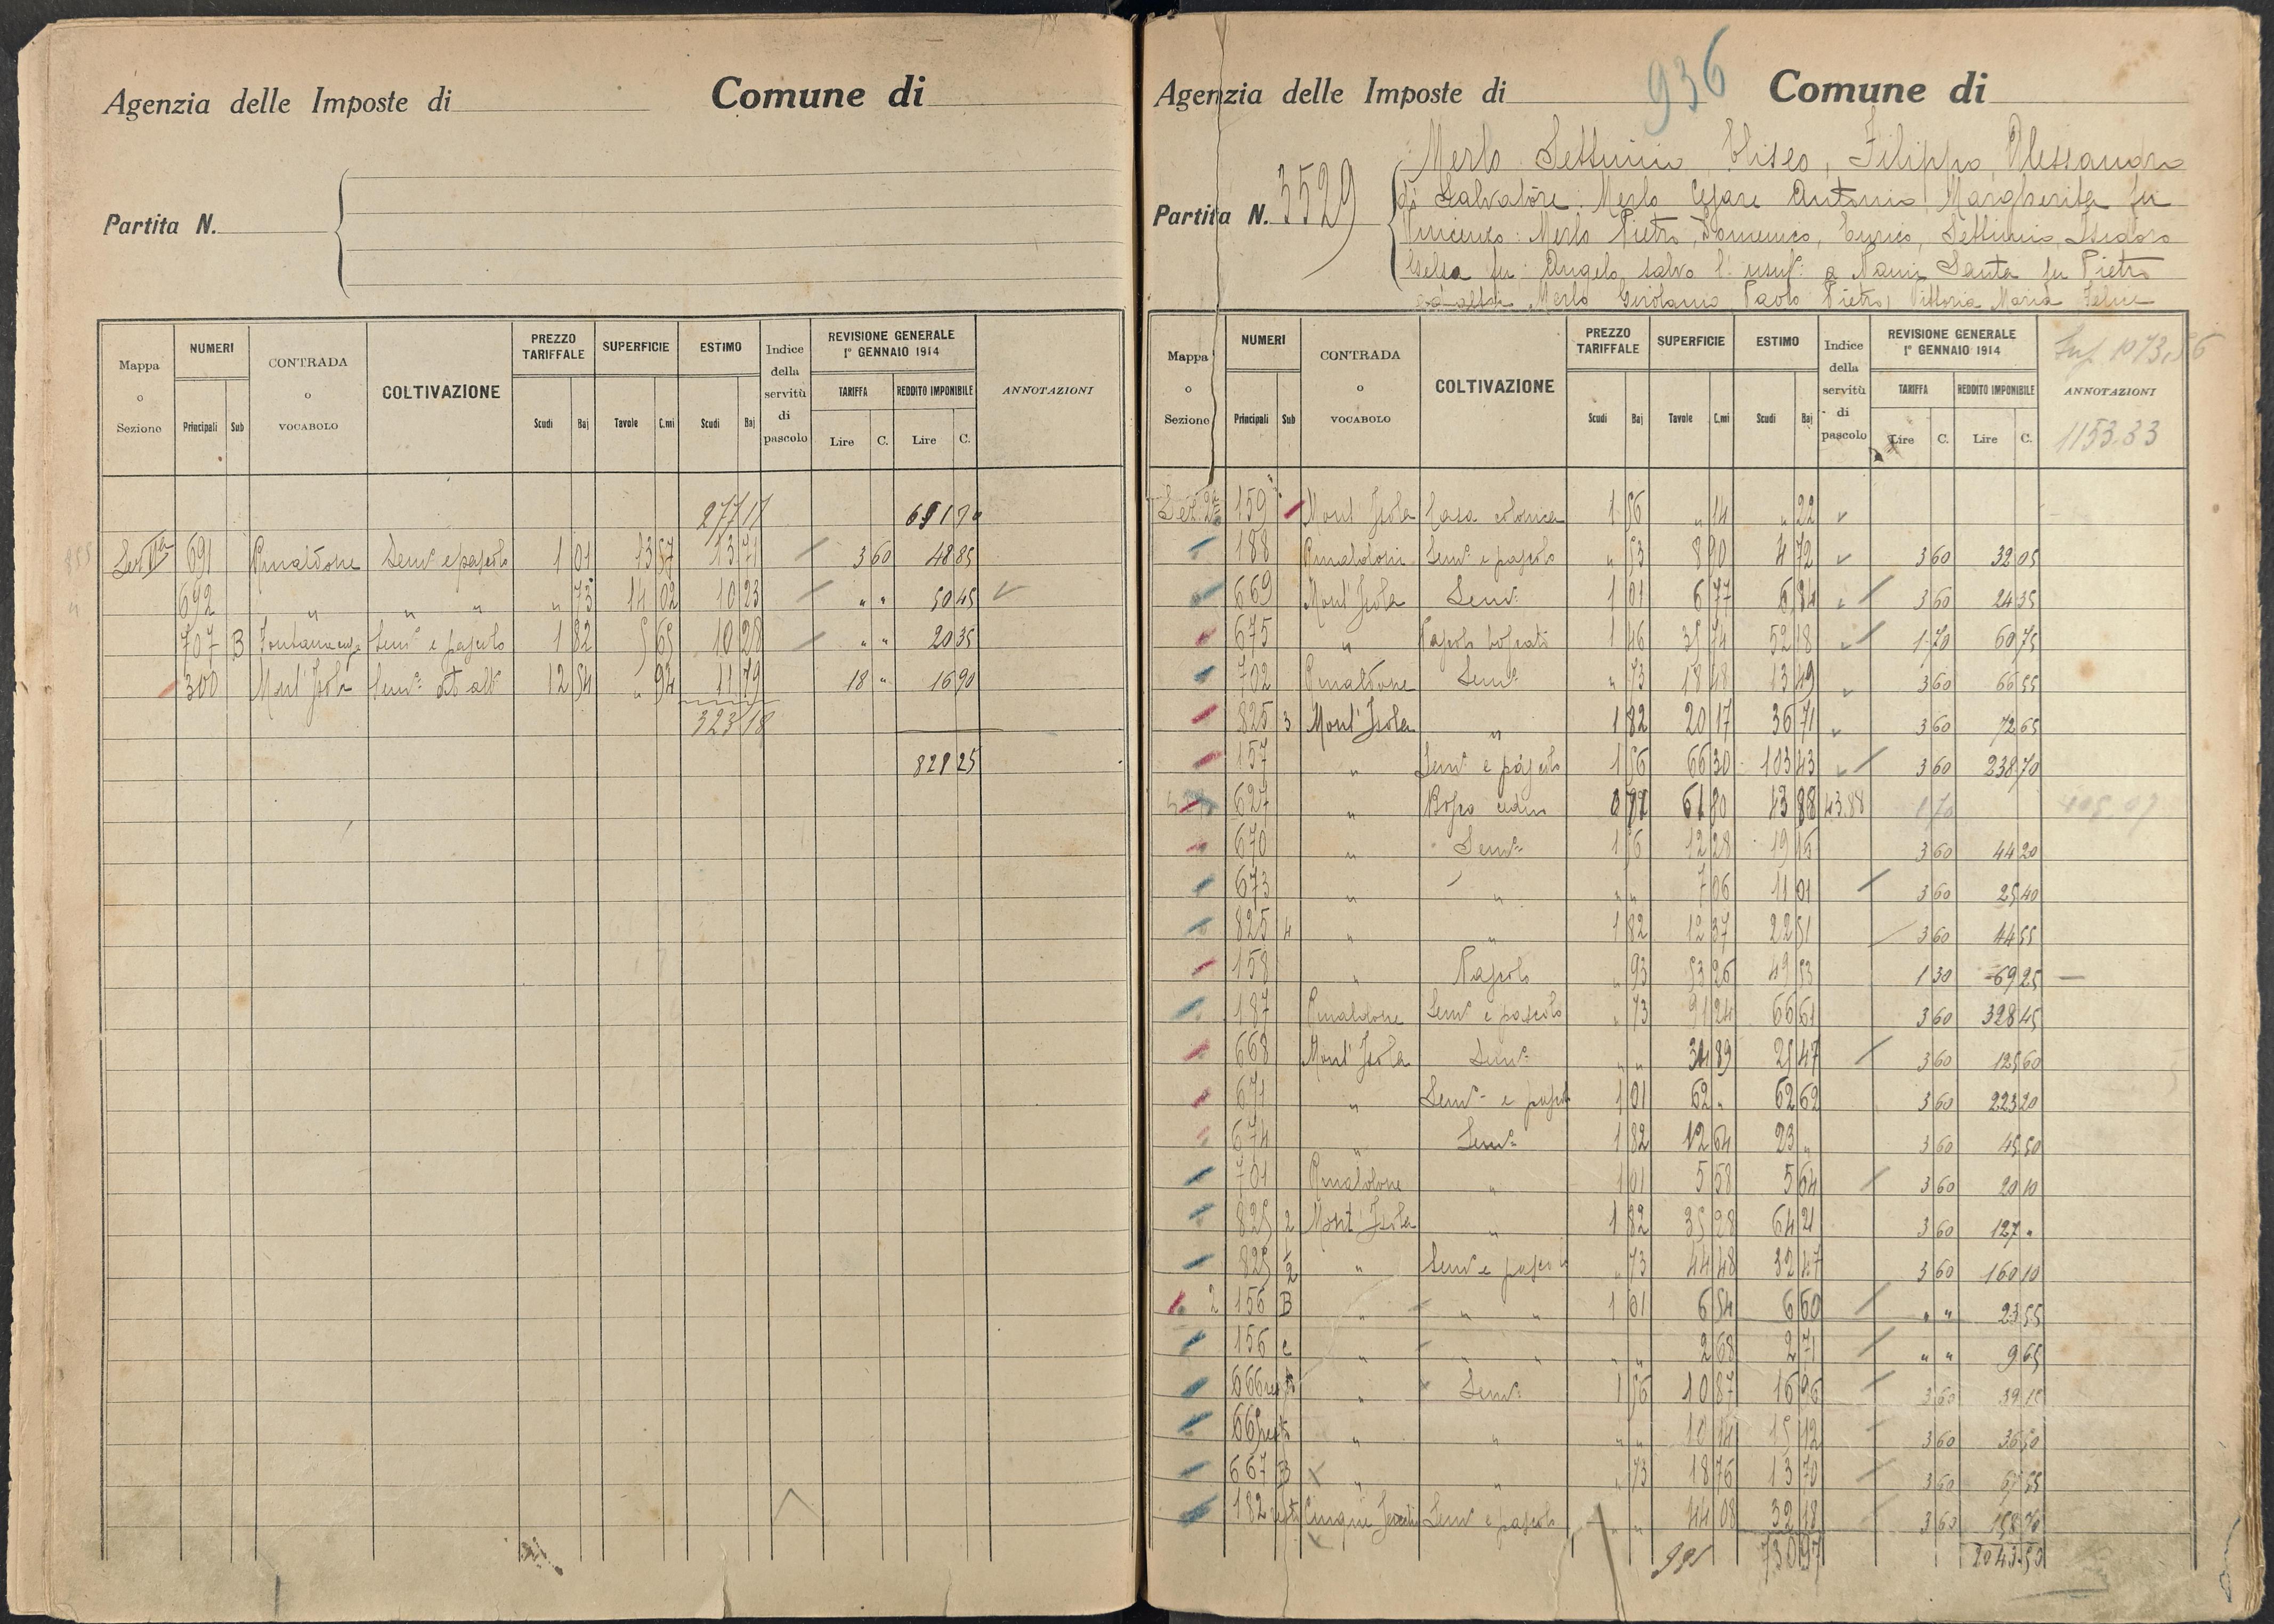 Agenzia delle Imposte di Comune di
Partita N.
Mappa o Sezione NUMERI Principali Sub CONTRADA o VOCABOLO COLTIVAZIONE PREZZO TARIFFALE Scudi Baj SUPERFICIE Tavole C.mi ESTIMO Scudi Baj Indice della servitù di pascolo REVISIONE GENERALE 1° GENNAIO 1914 TARIFFA Lire C. REDDITO IMPONIBILE Lire C. ANNOTAZIONI
277 17 691 90
691 Pinaldone Semve e pascolo 1 01 13 57 13 71 3 60 48 85
692 " " " " 73 14 02 10 23 " " 50 45
707 B Semve e pascolo 1 82 5 65 10 28 " " 20 35
300 Mont' Isola 12 54 " 94 11 79 18 " 16 90
323 18
828 25
936
Agenzia delle Imposte di Comune di
Partita N. 3529
Merlo Settimio, Eliseo, Filippo, Alessandro
di Salvatore: Merlo Cesare Antonio Margherita fu
Vincenzo: Merlo Pietro, Domenico, Enrico, Settimio, Isidoro
fu Angelo, salvo l'usuf: a Nami Santa fu Pietro
Merlo Girolamo Paolo Pietro, Vittoria Maria
Mappa o Sezione NUMERI Principali Sub CONTRADA o VOCABOLO COLTIVAZIONE PREZZO TARIFFALE Scudi Baj SUPERFICIE Tavole C.mi ESTIMO Scudi Baj Indice della servitù di pascolo REVISIONE GENERALE 1° GENNAIO 1914 TARIFFA Lire C. REDDITO IMPONIBILE Lire C. Sup. 1073,56 ANNOTAZIONI 1153.33
159 Mont' Isola Casa colonica 1 56 " 14 " 22
188 Pinaldone Semve e pascolo " 53 8 90 4 72 3 60 32 05
669 Mont' Isola Semve 1 01 6 77 6 84 3 60 24 35
675 " Pascolo boscato 1 46 35 74 52 18 1 70 60 75
702 Pinaldone Semve " 73 18 48 13 49 3 60 66 55
825 3 Mont' Isola " 1 82 20 17 36 71 3 60 72 65
157 " Semve e pascolo 1 56 66 30 103 43 3 60 238 70
627 " Bosco ceduo 0 71 61 80 43 88 43.88 1 70
670 " Semve 1 56 12 28 19 16 3 60 44 20
673 " " " " 7 06 11 01 3 60 25 40
825 4 " " 1 82 12 37 22 51 3 60 44 55
158 " Pascolo " 93 53 26 49 53 1 30 69 25
187 Pinaldone Semve e pascolo " 73 91 24 66 61 3 60 328 45
668 Mont' Isola Semve " " 34 89 25 47 3 60 125 60
671 " Semve e pascolo 1 01 62 " 62 62 3 60 223 20
674 " Semve 1 82 12 64 23 " 3 60 45 50
701 Pinaldone " 1 01 5 58 5 64 3 60 20 10
825 2 Mont' Isola " 1 82 35 28 64 21 3 60 127 "
825 1/2 " Semve e pascolo " 73 44 48 32 47 3 60 160 10
2 156 B " " " 1 01 6 54 6 60 " " 23 55
156 c " " " " " 2 68 2 71 " " 9 65
666 resto " Semve 1 56 10 87 16 96 3 60 39 15
resto " " " " 10 14 15 12 3 60 36 50
667 B " " " 73 18 76 13 70 3 60 67 55
182 resto Cinque Semve e pascolo " " 44 08 32 18 3 60 158 70
730 97 2043 50